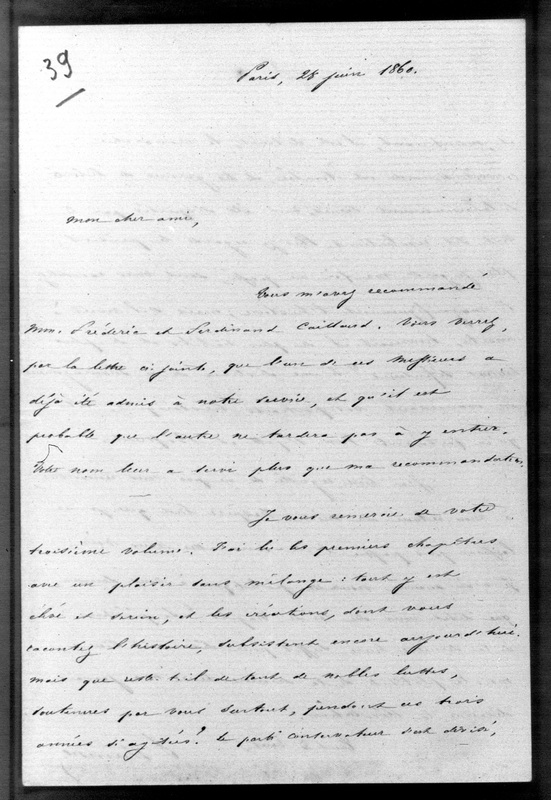 39
Paris, 28 juin 1860.
mon cher ami,
Vous m'avez recommandé
Mm. Fréderic et Ferdinand Caillard. Vous verrez,
par la lettre ci jointe, que l'un de ces Messieurs a
déjà été admis à notre service, et qu'il est
probable que l'autre ne tardera pas à y entrer.
Votre nom leur a servi plus que ma recommandation.
Je vous remercie de votre
troisième volume. J'ai lu les premiers chapitres
avec un plaisir sans mélange : tout y est
et serein, et les créations, dont vous
racontez l'histoire, subsistent encore aujourd'hui.
mais que reste-t-il de tant de nobles luttes,
soutenues par vous surtout, pendant ces trois
années si agitées ? Le parti conservateur s'est divisé,